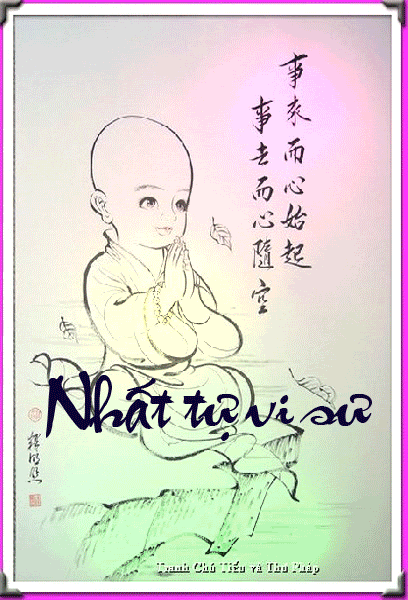 事來而心始起
事去而心隨空
Nhất tự vi sư
Tranh Chú Tiểu và Thư Pháp